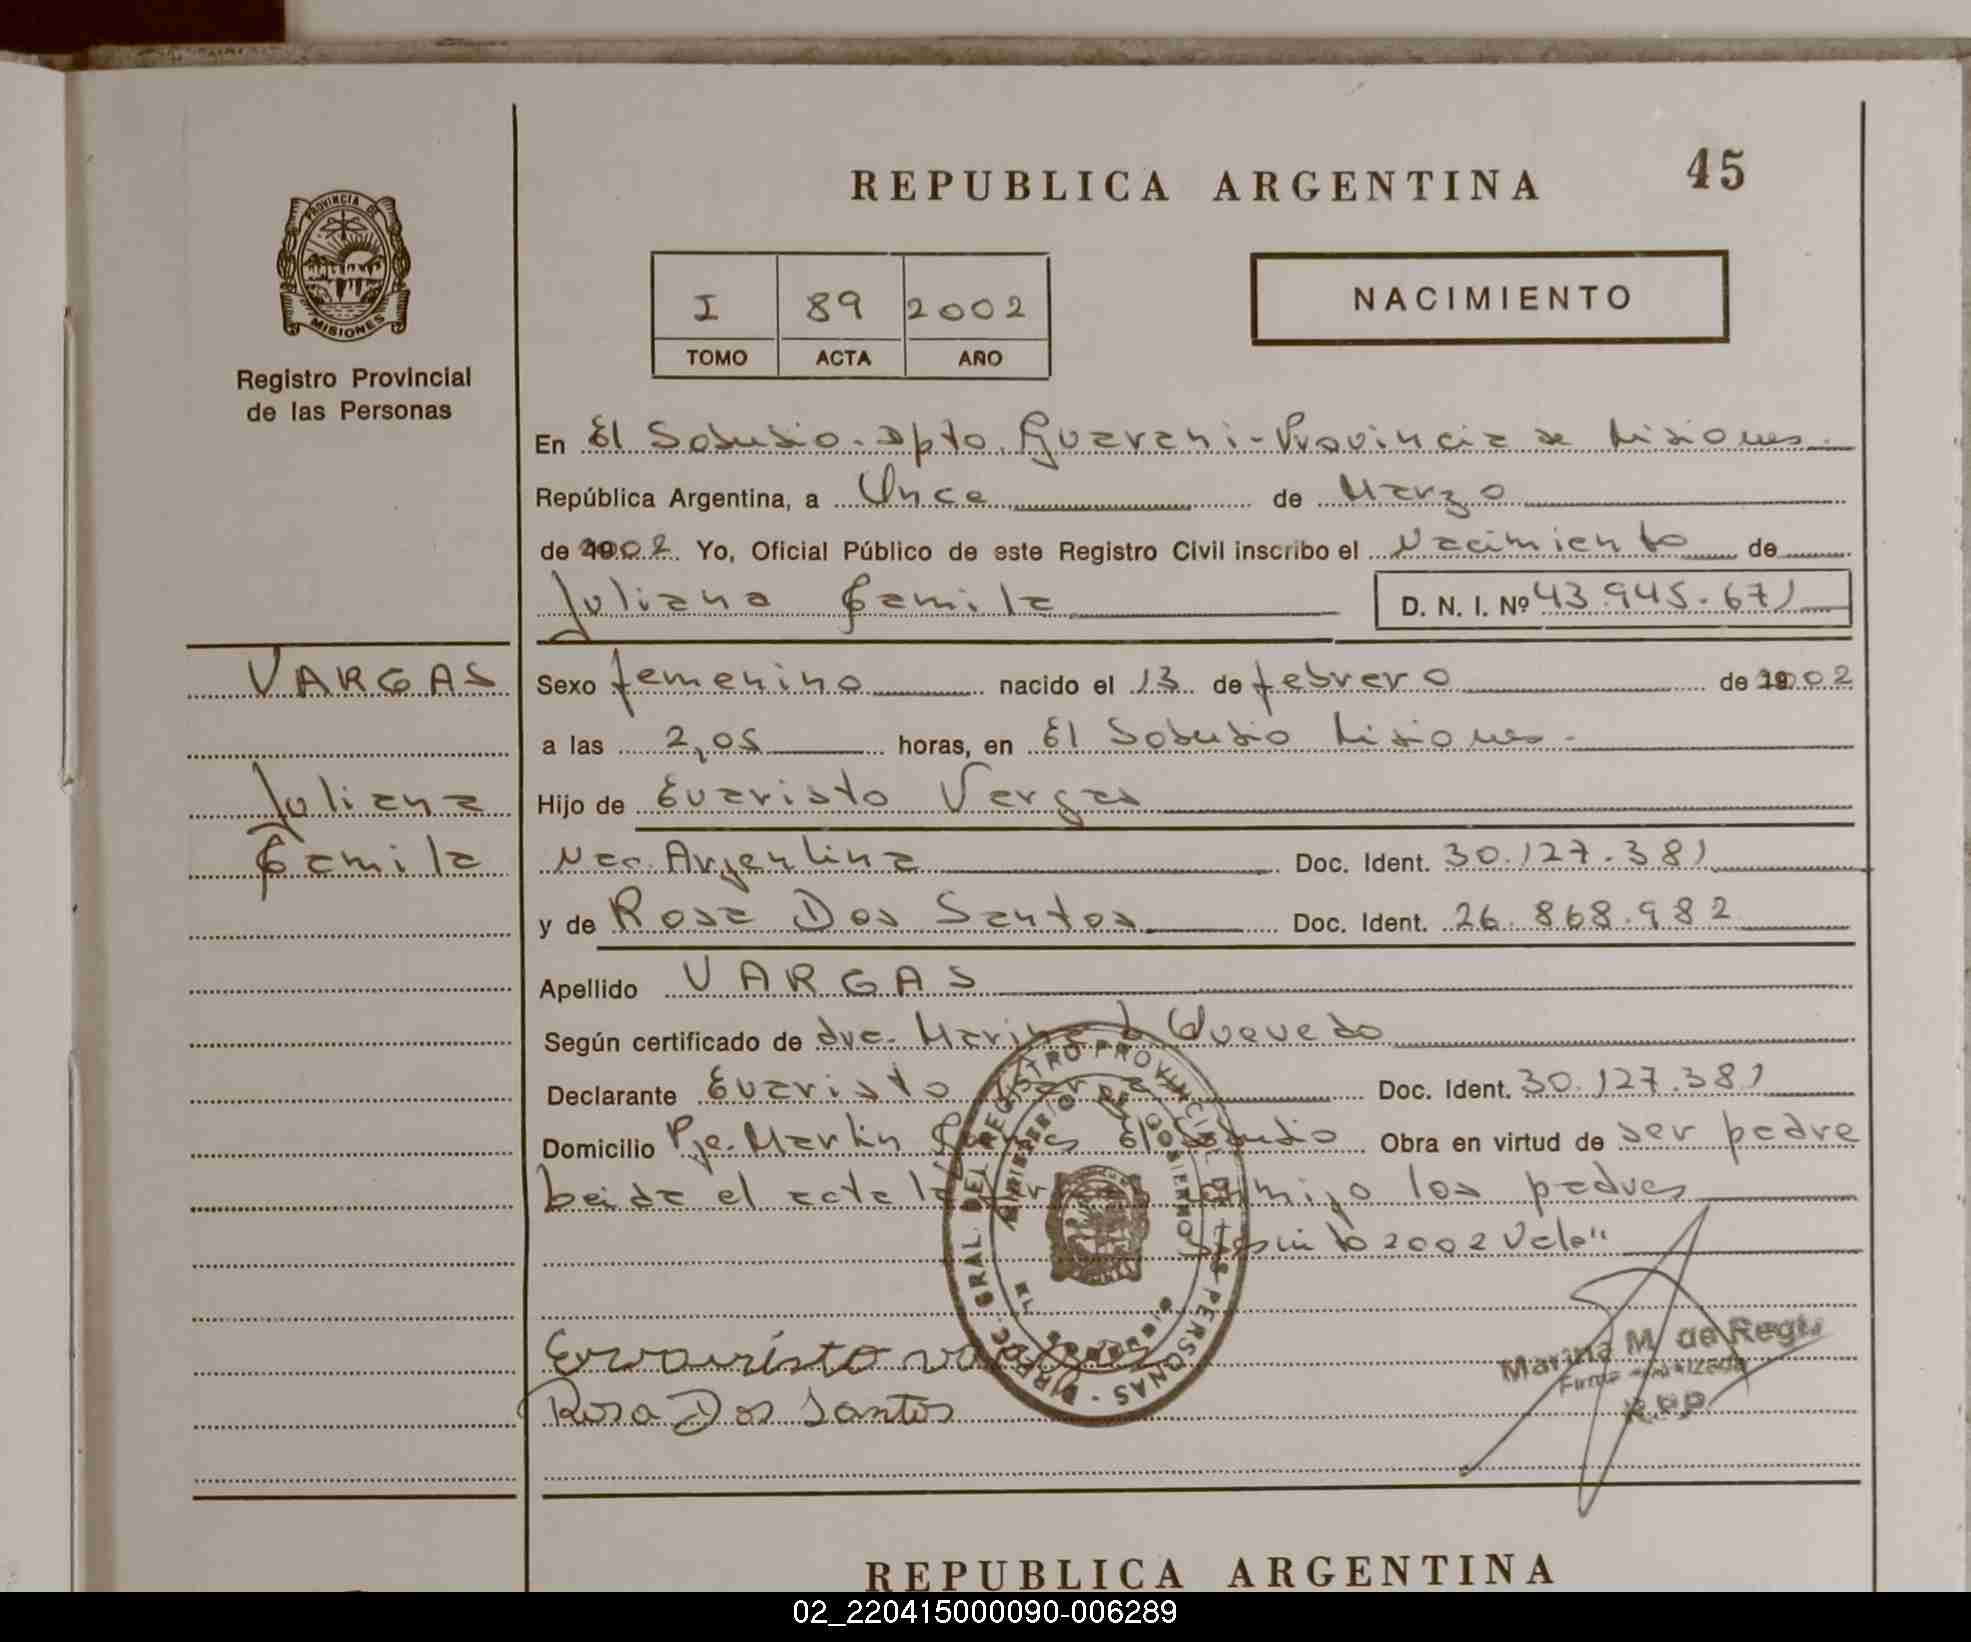 REPUBLICA ARGENTINA 45
PROVINCIA DE
MISIONES
Registro Provincial
de las Personas
I 89 2002
TOMO ACTA AÑO
NACIMIENTO
En El Soberbio. Dpto. Guarani-Provincia de Misiones.
República Argentina, a Once de Marzo
de 2002. Yo, Oficial Público de este Registro Civil inscribo el Nacimiento de
Juliana Camila D. N. I. Nº 43.945.671
VARGAS
Sexo femenino nacido el 13 de febrero de 2002
a las 2,05 horas, en El Soberbio Misiones.
Juliana
Hijo de Evaristo Vargas
Camila
Nac. Argentina Doc. Ident. 30.127.381
y de Rosa Dos Santos Doc. Ident. 26.868.982
Apellido VARGAS
Según certificado de dra. Marina Quevedo
Declarante Evaristo Vargas Doc. Ident. 30.127.381
Domicilio Pje. Martin El Soberbio Obra en virtud de ser padre
leida el acta la conmigo los padres
2002 Vale"
DIREC. GRAL. DEL REGISTRO PROVINCIAL DE LAS PERSONAS
MINISTERIO DE GOBIERNO
MISIONES
Evaristo vargas
Rosa Dos Santos
Marina M. de Regis
Firma Autorizada
R.P.P.
REPUBLICA ARGENTINA
02_220415000090-006289